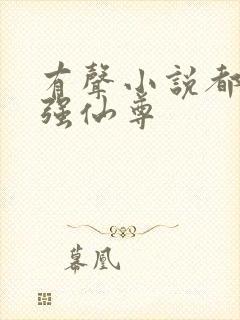 有聲小説都
强仙尊
慕凰